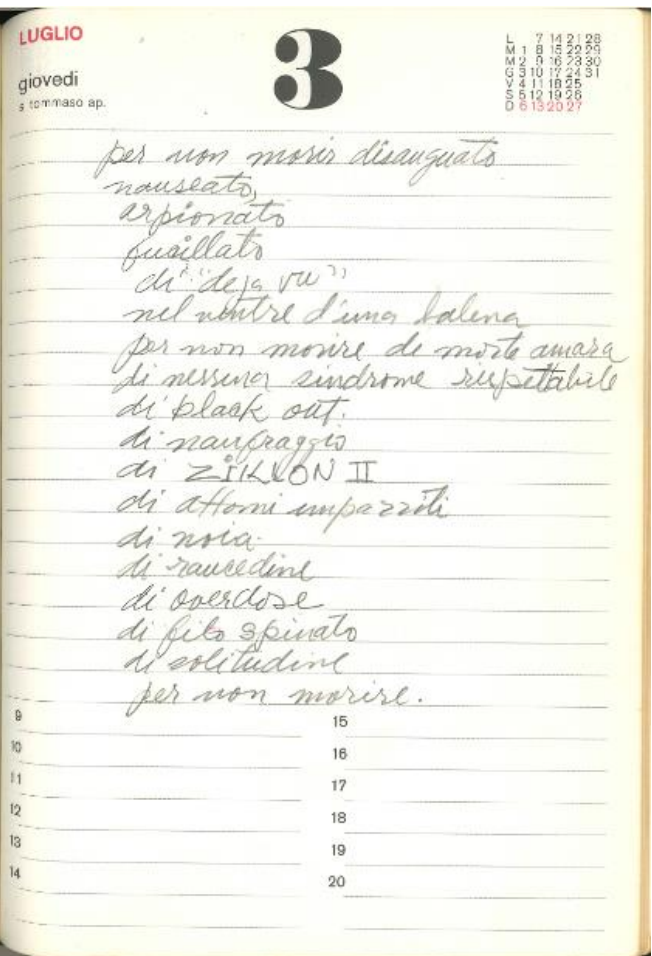 LUGLIO
3
giovedi
s tommaso ap.
L 7 14 21 28
M 1 8 15 22 29
M 2 9 16 23 30
G 3 10 17 24 31
V 4 11 18 25
S 5 12 19 26
D 6 13 20 27
per non morir disanguato
nauseato,
arpionato
fucillato
di "deja vu"
nel ventre d'una balena
per non morire de morte amara
di nessuna sindrome rispettabile
di black out.
di naufraggio
di ZIKLON II
di attomi impazziti
di noia.
di raucedine
di overdose
di filo spinato
di solitudine
per non morire.
9
10
11
12
13
14
15
16
17
18
19
20